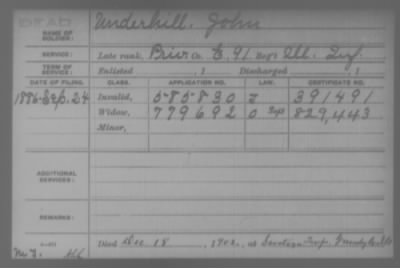 DEAD
NAME OF SOLDIER: Underhill, John
SERVICE: Late rank, Priv Co. E, 91 Reg't Ill. Inf.
TERM OF SERVICE: Enlisted , 1 Discharged , 1
DATE OF FILING. CLASS. APPLICATION NO. LAW. CERTIFICATE NO.
1886 Sep. 24 Invalid, 585830 391491
Widow, 779692 829,443
Minor,
ADDITIONAL SERVICES:
REMARKS:
Died Dec 18, 1902, at Saratoga Twp.